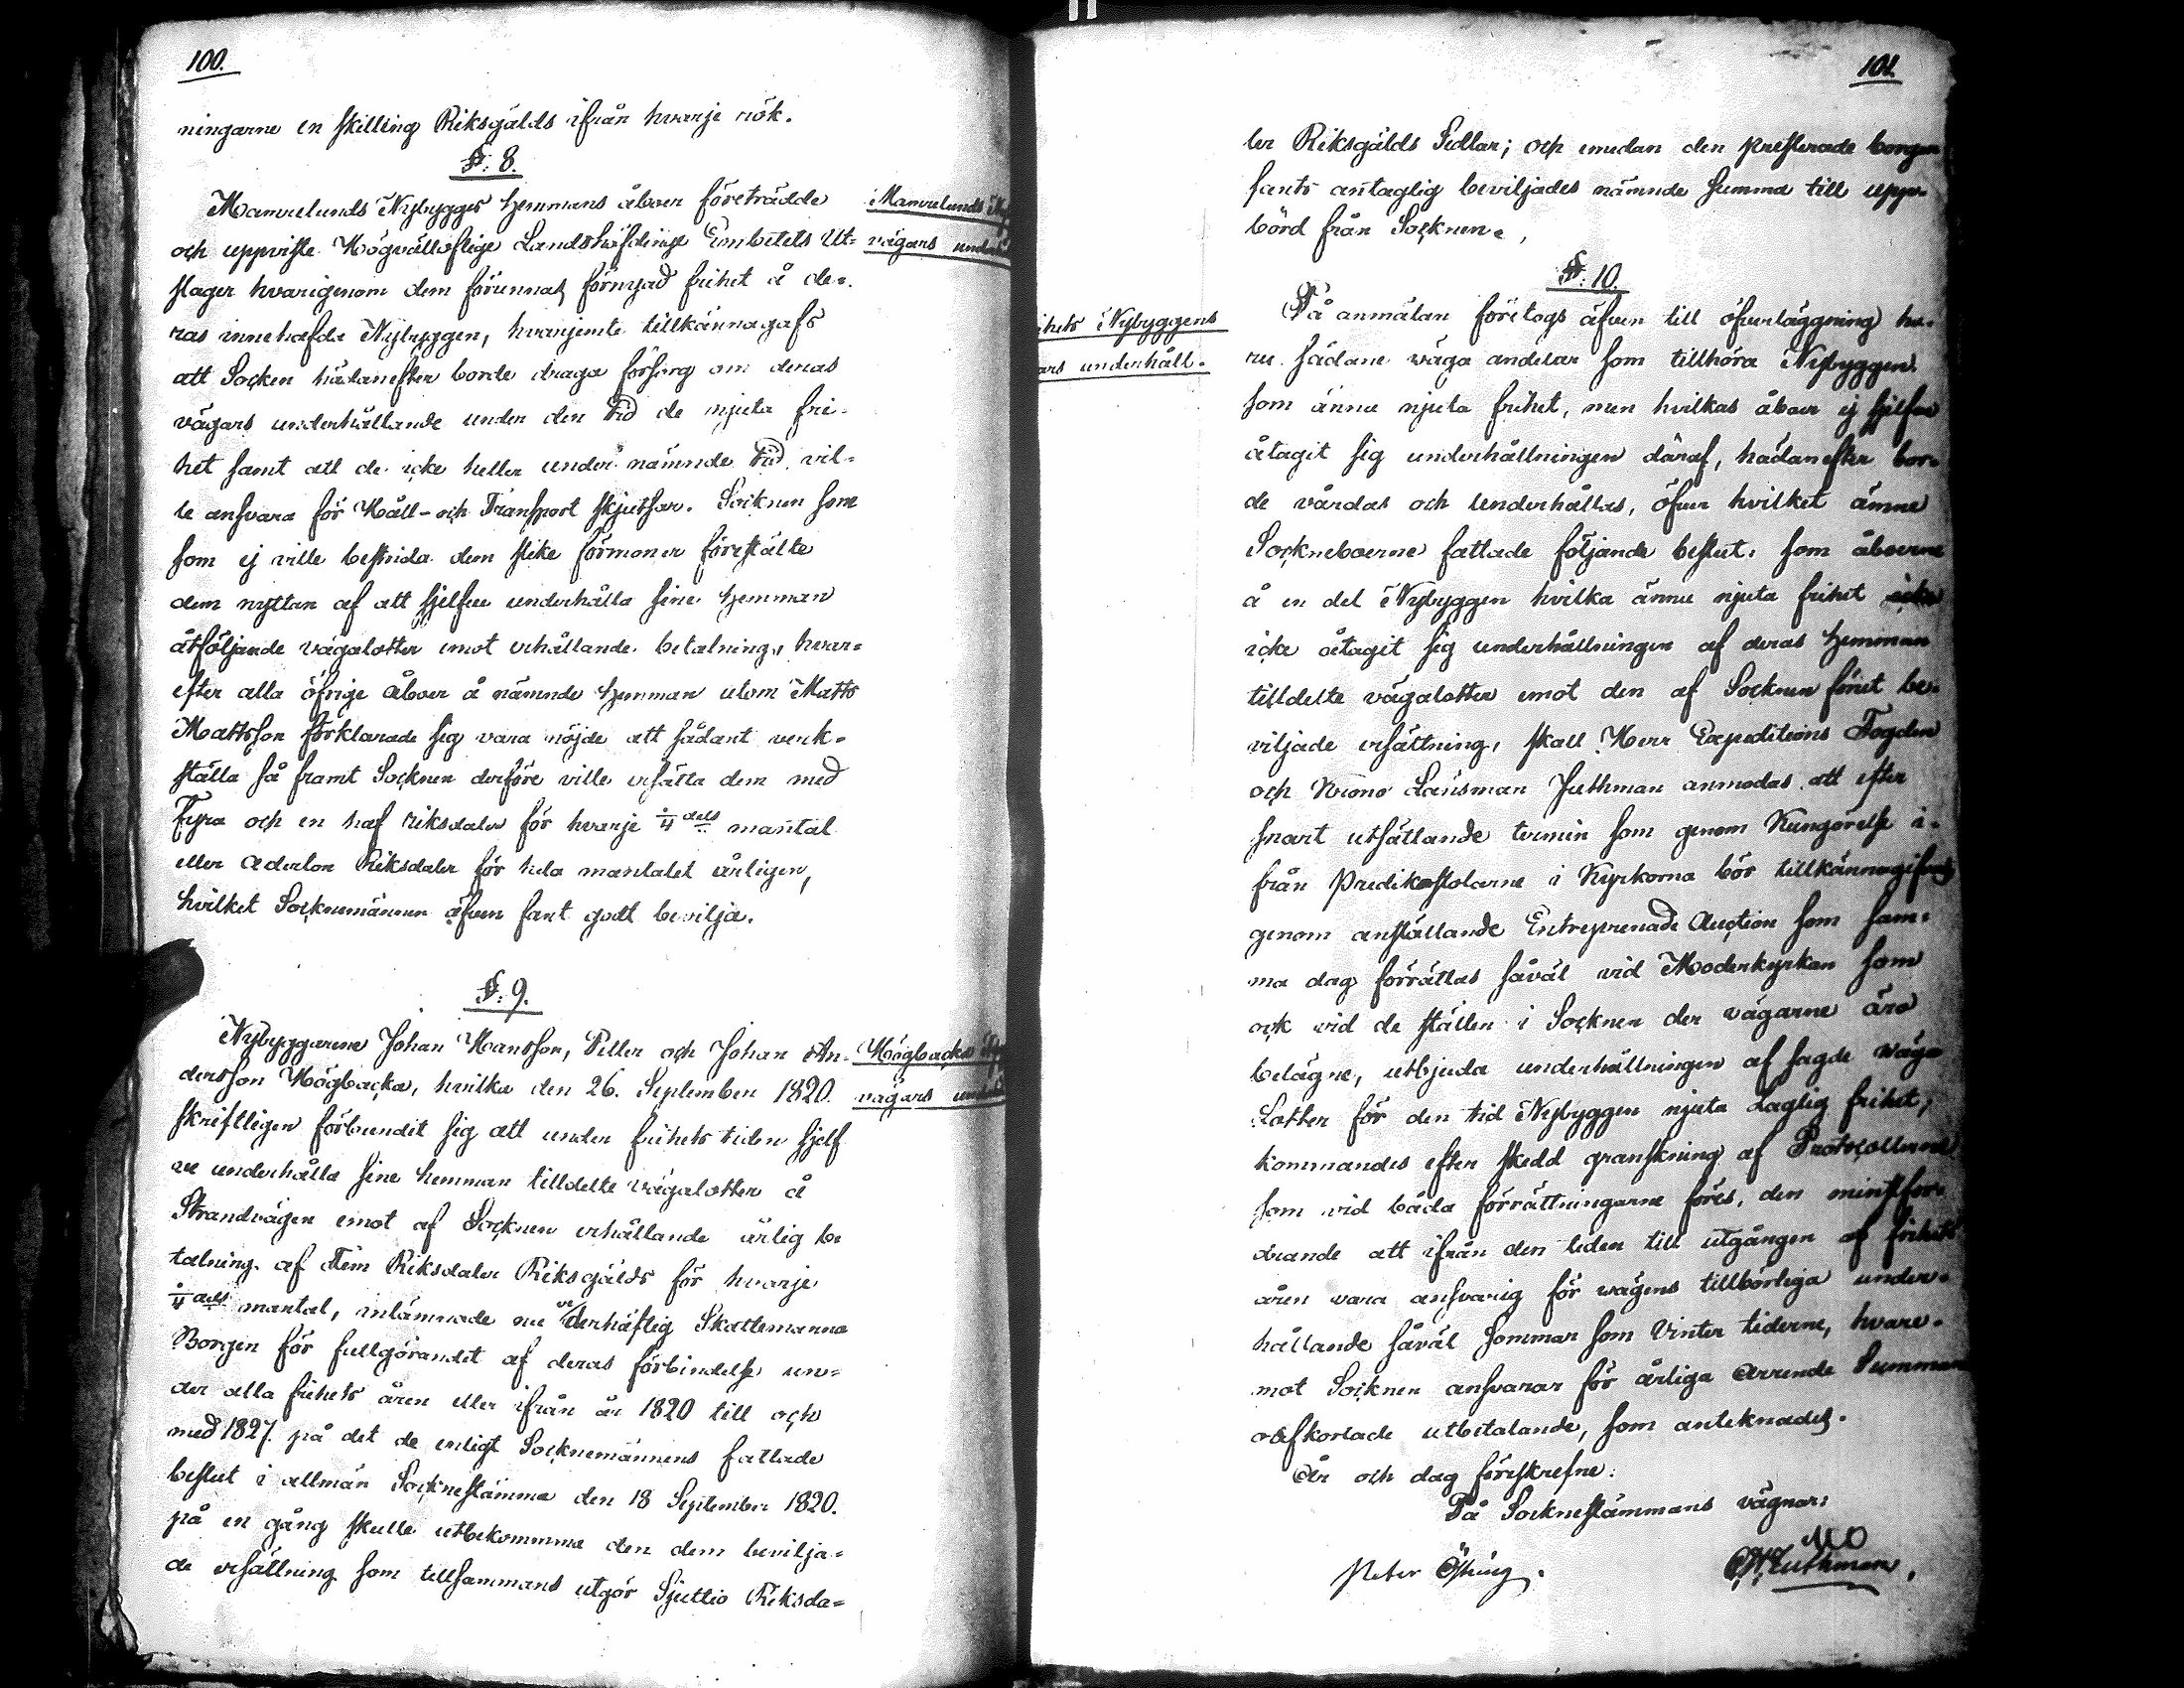 100.
ningarne en skilling Riksgälds ifrån hvarje rök.
§: 8.
Manvelunds Nybygges hemmans åboer företrädde
och uppviste Högvällofliga Landshöfdinge Embetets Ut-
slager hvarigenom dem förunnats förnyad frihet å de-
ras innehafda Nybyggen, hvarjemte tillkännagafs
att Socken hädanefter borde draga försorg om deras
vägars underhållande under den tid de njuta fri-
het samt att de icke heller under nämnde tid vil-
le ansvara för Håll- och Transport skjutsar. Socknen som
som ej ville bestrida dem slike förmoner förestälte
dem nyttan af att sjelfve underhålla sine hemman
åtföljande vägalotter emot erhållande betalning, hvar-
efter alla öfrige åboer å nämnde hemman utom Matts
Mattsson förklarade sig vara nöjde att sådant verk-
ställa så framt Socknen derföre ville ersätta dem med
Fyra och en half riksdaler för hvarje 1/4 dels mantal
eller Aderton Riksdaler för hela mantalet årligen,
hvilket Socknemännen äfven fant godt bevilja.
Manvelunds
vägars
§: 9.
Nybyggarene Johan Hansson, Piller och Johan An-
dersson Högbacka, hvilka den 26. September 1820.
skriftligen förbundit sig att under frihets tiden sjelf
ve underhålla sine hemman tilldelte vägalotter å
Strandvägen emot af Socknen erhållande årlig be
talning af Fem Riksdaler Riksgälds för hvarje
1/4 dels mantal, inlämnade nu vederhäftig Skattemanna
Borgen för fullgörandet af deras förbindelse un-
der alla frihets åren eller ifrån år 1820 till och
med 1827. på det de enligt Socknemännens fattade
beslut i allmän Socknestämma den 18 September 1820.
på en gång skulle utbekomma den dem bevilja-
de ersättning som tillsammans utgör Sjuttio Riksda-
Högbacka
vägars
101.
ler Riksgälds Sedlar; och emedan den presterade borgen
fants antaglig beviljades nämnde summa till upp-
börd från Socknen.
§: 10.
På anmälan företogs äfven till öfverläggning hu-
ru sådane väga andelar som tillhöra Nybyggen
som ännu njuta frihet, men hvilkas åboer ej sjelfve
åtagit sig underhållningen däraf, hädanefter bor-
de vårdas och underhållas, öfver hvilket ämne
Sockneboerne fattade följande beslut: som åboerne
å en del Nybyggen hvilka ännu njuta frihet
icke åtagit sig underhållningen af deras hemman
tilldelte vägalotter emot den af Socknen förut be-
viljade ersättning, skall Herr Expeditions Fogden
och Krono Länsman Juthman anmodas att efter
snart utsättande termin som genom Kungörelse i-
från Predikostolarne i Kyrkorna bör tillkännagifvas
genom anställande Entreprenade Auction som sam-
ma dag förrättas såväl vid Moderkyrkan som
ock vid de ställen i Socknen der vägarne äro
belägne, utbjuda underhållningen af sagde väga
Lotter för den tid Nybyggen njuta Laglig frihet,
kommandes efter skedd granskning af Protocollerne
som vid båda förrättningarne föres, den minst for-
drande att ifrån den tiden till utgången af frihets
åren vara ansvarig för vägens tillbörliga under-
hållande såväl Sommar som Vinter tiderne, hvare-
mot Socknen ansvarar för årliga Arrende Summans
oafkortade utbetalande, som anteknades.
År och dag föreskrefne.
På Socknestämmans vägnar:
Nybyggens
underhåll.